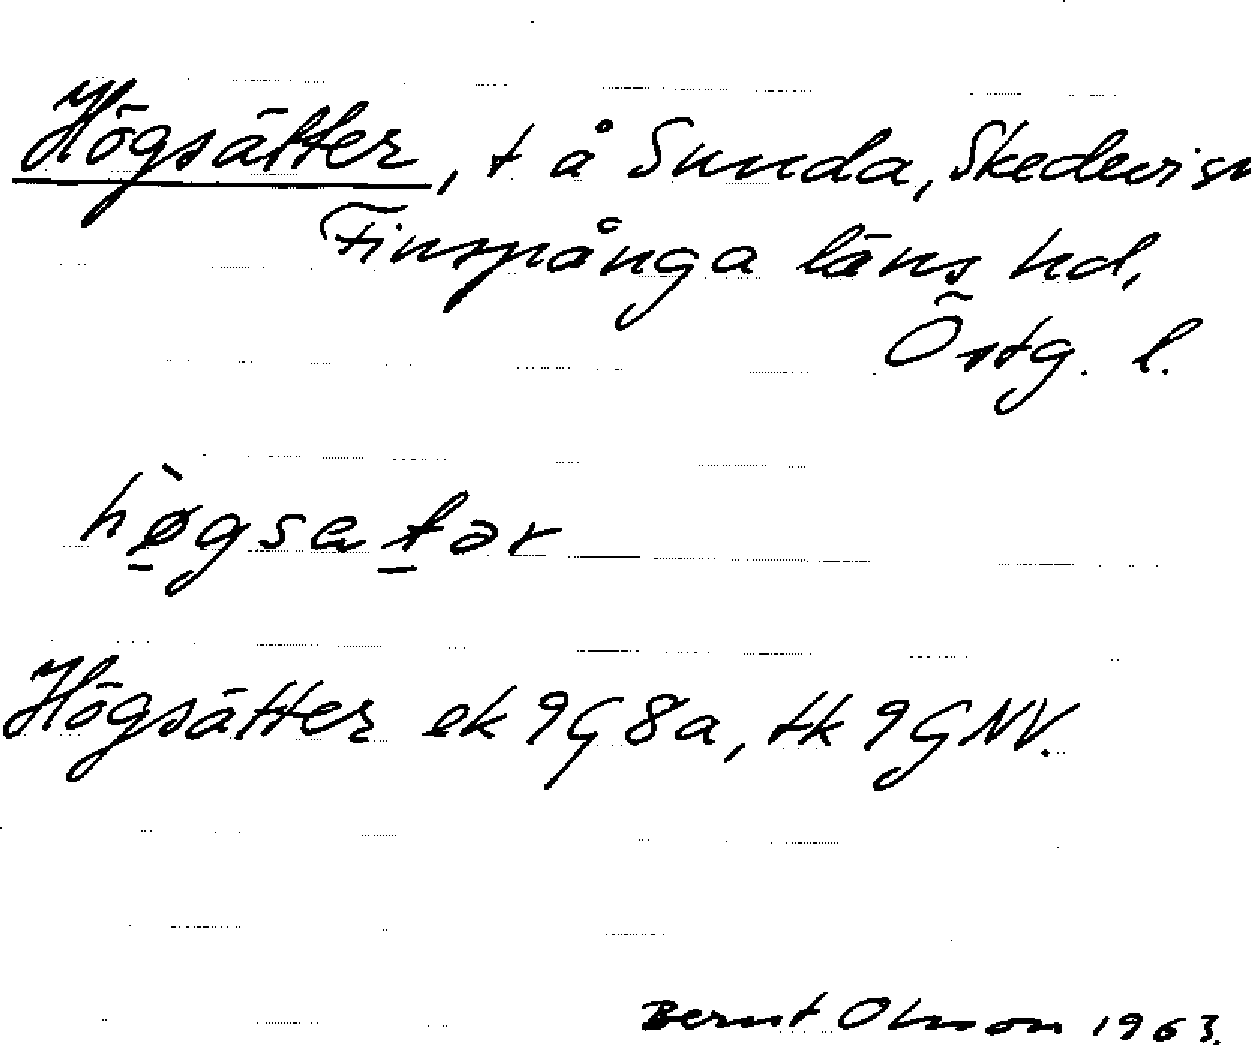 Högsätter, t å Sunda, Skedevi sn
Finspånga läns hd,
Östg. l.
hø̀gsatər
Högsätter ek 9G 8a, tk 9G NV.
Bernt Olsson 1963.